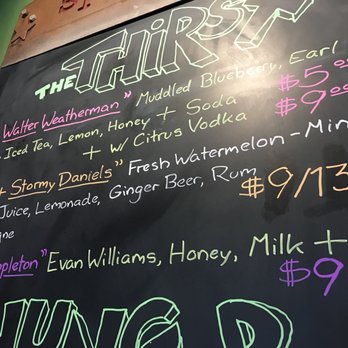 ST.
THE THIRST
Walter Weatherman" Muddled Blueberry, Earl
Iced Tea, Lemon, Honey + Soda $5.0
+ w/ Citrus Vodka $9.00
+ Stormy Daniels" Fresh Watermelon - Min
Juice, Lemonade, Ginger Beer, Rum
$9/13
pleton" Evan Williams, Honey, Milk +
$9